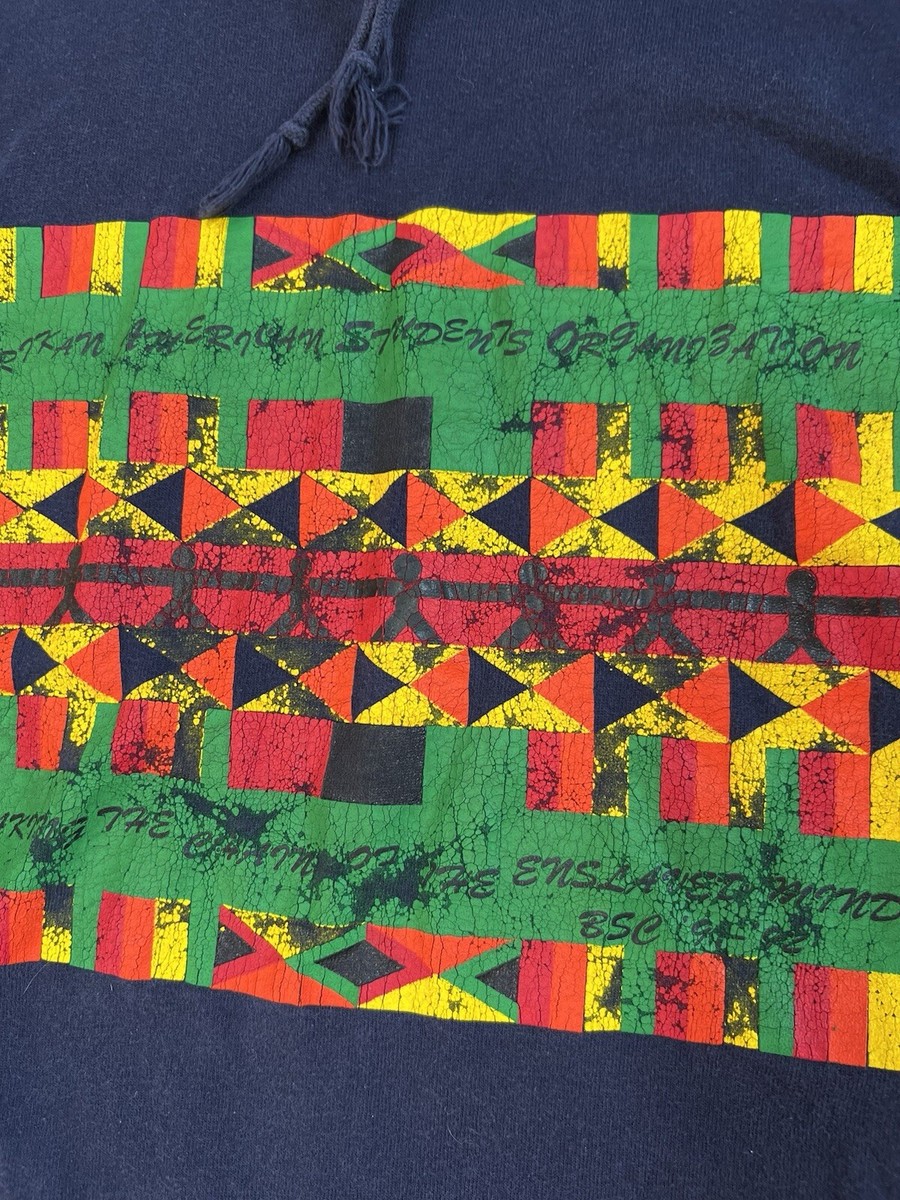 RIKAN AMERIKAN STUDENTS ORGANIZATION
AKING THE CHAIN OF THE ENSLAVED MIND
BSC